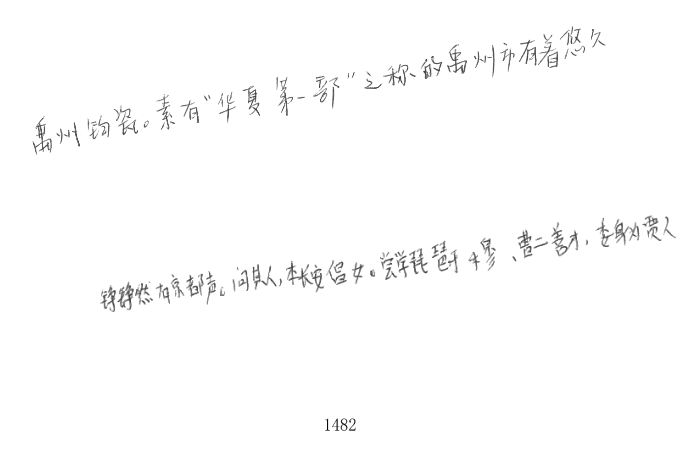 禹州钧瓷。素有“华夏第一部”之称的禹州市有着悠久
铮铮然有京都声。问其人，本长安倡女。尝学琵琶于穆、曹二善才，委身为贾人
1482